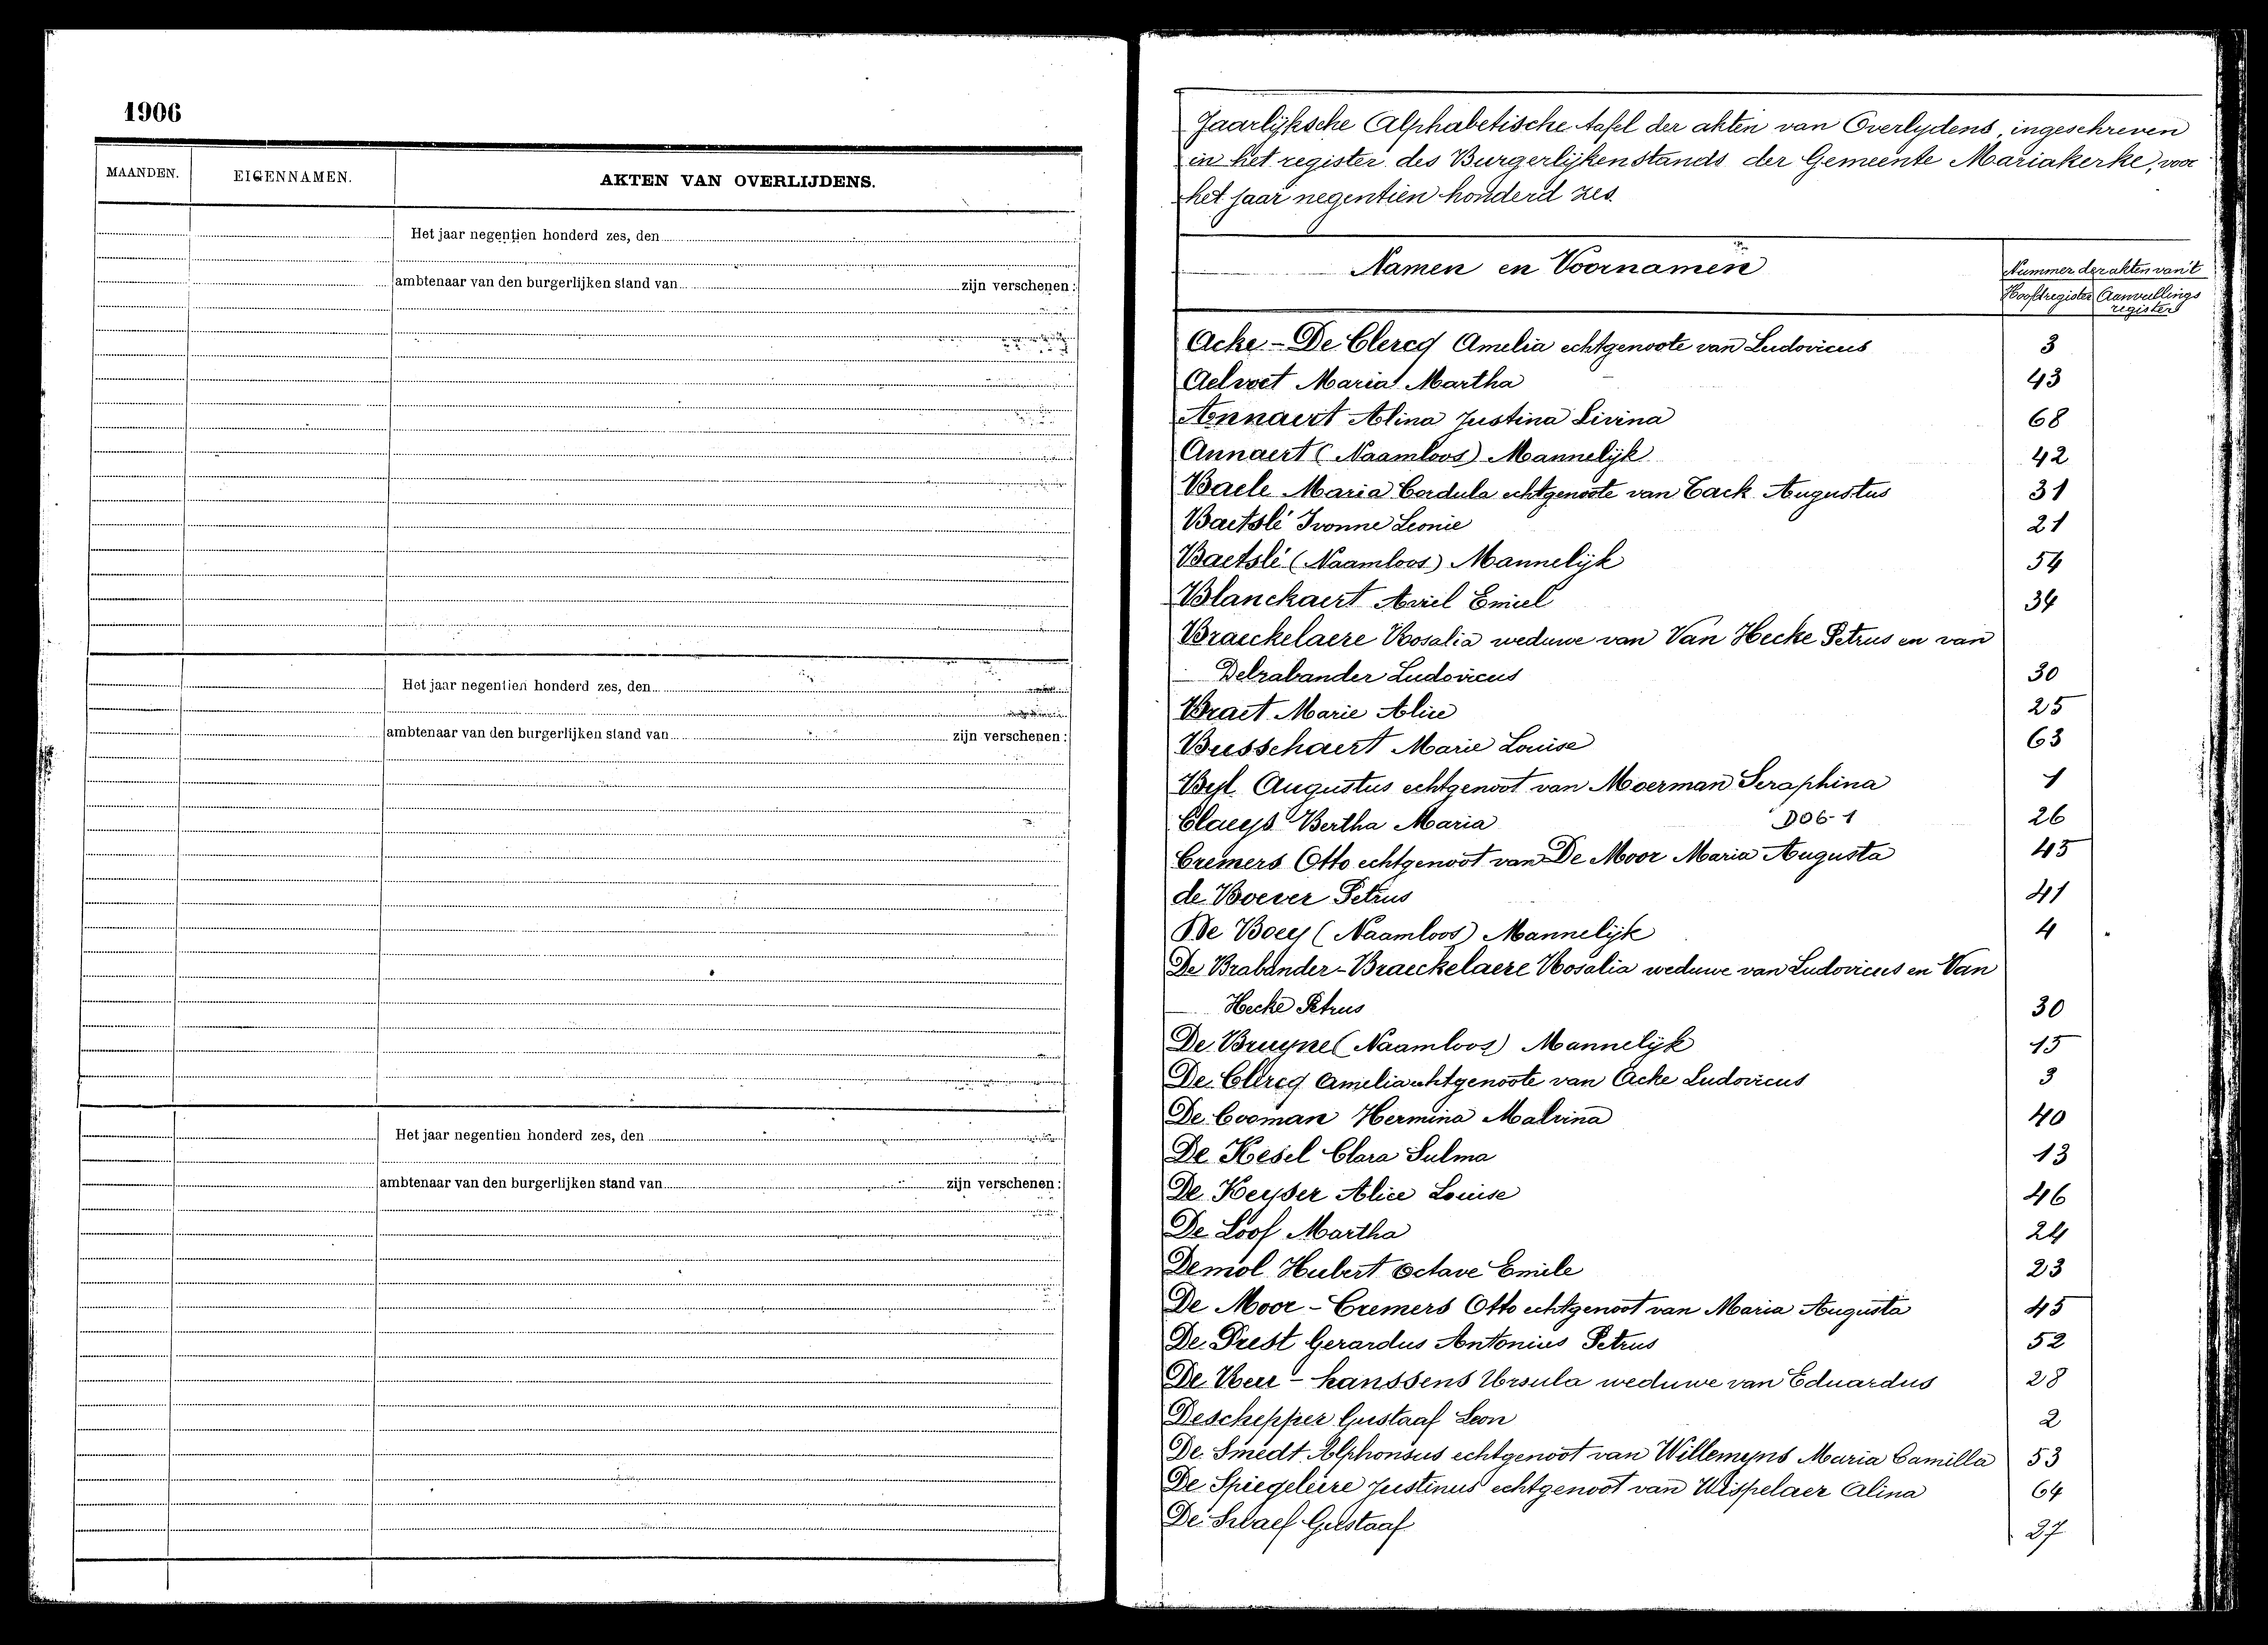 1906
MAANDEN. EIGENNAMEN. AKTEN VAN OVERLIJDENS.
Het jaar negentien honderd zes, den
ambtenaar van den burgerlijken stand van zijn verschenen:
Het jaar negentien honderd zes, den
ambtenaar van den burgerlijken stand van zijn verschenen:
Het jaar negentien honderd zes, den
ambtenaar van den burgerlijken stand van zijn verschenen:
Jaarlijksche Alphabetische tafel der akten van Overlydens, ingeschreven
in het register des Burgerlijkenstands der Gemeente Mariakerke, voor
het jaar negentien honderd zes.
Namen en Voornamen Nummer der akten van't
Hoofdregister Aanvullings
register
Acke - De Clercq Amelia echtgenoote van Ludovicus 3
Aelvoet Maria Martha 43
Annaert Alina Justina Livina 68
Annaert (Naamloos) Mannelijk 42
Baele Maria Cordula echtgenoote van Cack Augustus 31
Baetslé Ivonne Leonie 21
Baetslé (Naamloos) Mannelijk 54
Blanckaert Emiel 34
Braeckelaere Rosalia weduwe van Van Hecke Petrus en van
Debrabander Ludovicus 30
Braet Marie Alice 25
Busschaert Marie Louise 63
Byl Augustus echtgenoot van Moerman Seraphina 1
Claeys Bertha Maria D06-1 26
Cremers Otto echtgenoot van De Moor Maria Augusta 45
de Boever Petrus 41
De Boey (Naamloos) Mannelijk 4
De Brabander-Braeckelaere Rosalia weduwe van Ludovicus en Van
Hecke Petrus 30
De Bruyne (Naamloos) Mannelijk 15
De Clercq Amelia echtgenoote van Acke Ludovicus 3
De Cooman Hermina Malvina 40
De Kesel Clara Sulma 13
De Keyser Alice Louise 46
De Loof Martha 24
Demol Hubert Octave Emile 23
De Moor - Cremers Otto echtgenoot van Maria Augusta 45
De Prest Gerardus Antonius Petrus 52
De - Ursula weduwe van Eduardus 28
Deschepper Gustaaf Leon 2
De Smedt Alphonsus echtgenoot van Willemyns Maria Camilla 53
De Spiegeleire Justinus echtgenoot van Wispelaer Alina 64
De Gustaaf 27